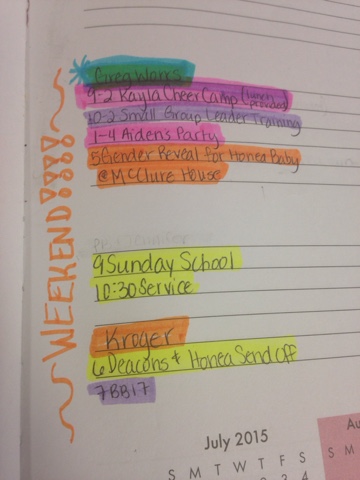 WEEKEND!!!!
Greg Works
9-2 Kayla Cheer Camp (lunch provided)
10-2 Small Group Leader Training
1-4 Aiden's Party
5 Gender Reveal for Honea Baby
@ McClure House
9 Sunday School
10:30 Service
Kroger
6 Deacons + Honea Send Off
7 BB17
July 2015
S M T W T F S
S M